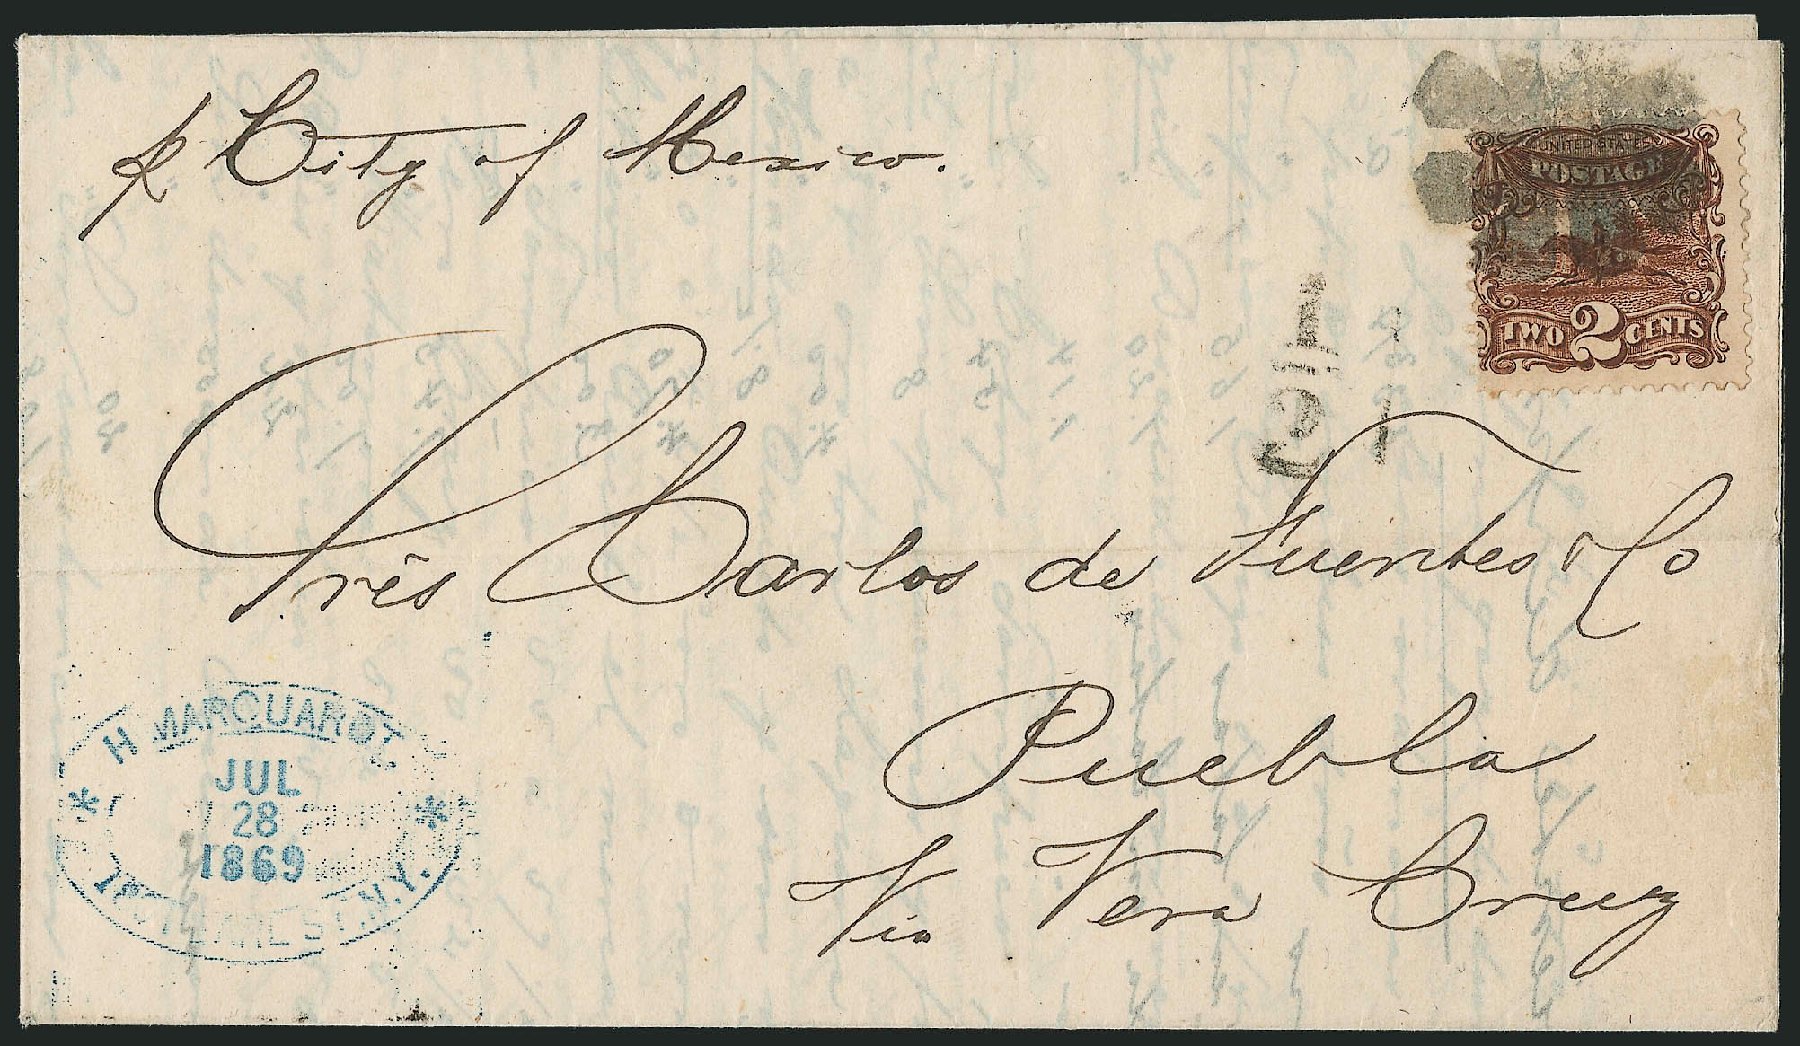 p City of Mexico.
UNITED STATES
POSTAGE
TWO 2 CENTS
Srés Carlos de Fuentes & Co
Puebla
Via Vera Cruz
H MARQUARDT
JUL
28
1869
N.Y.